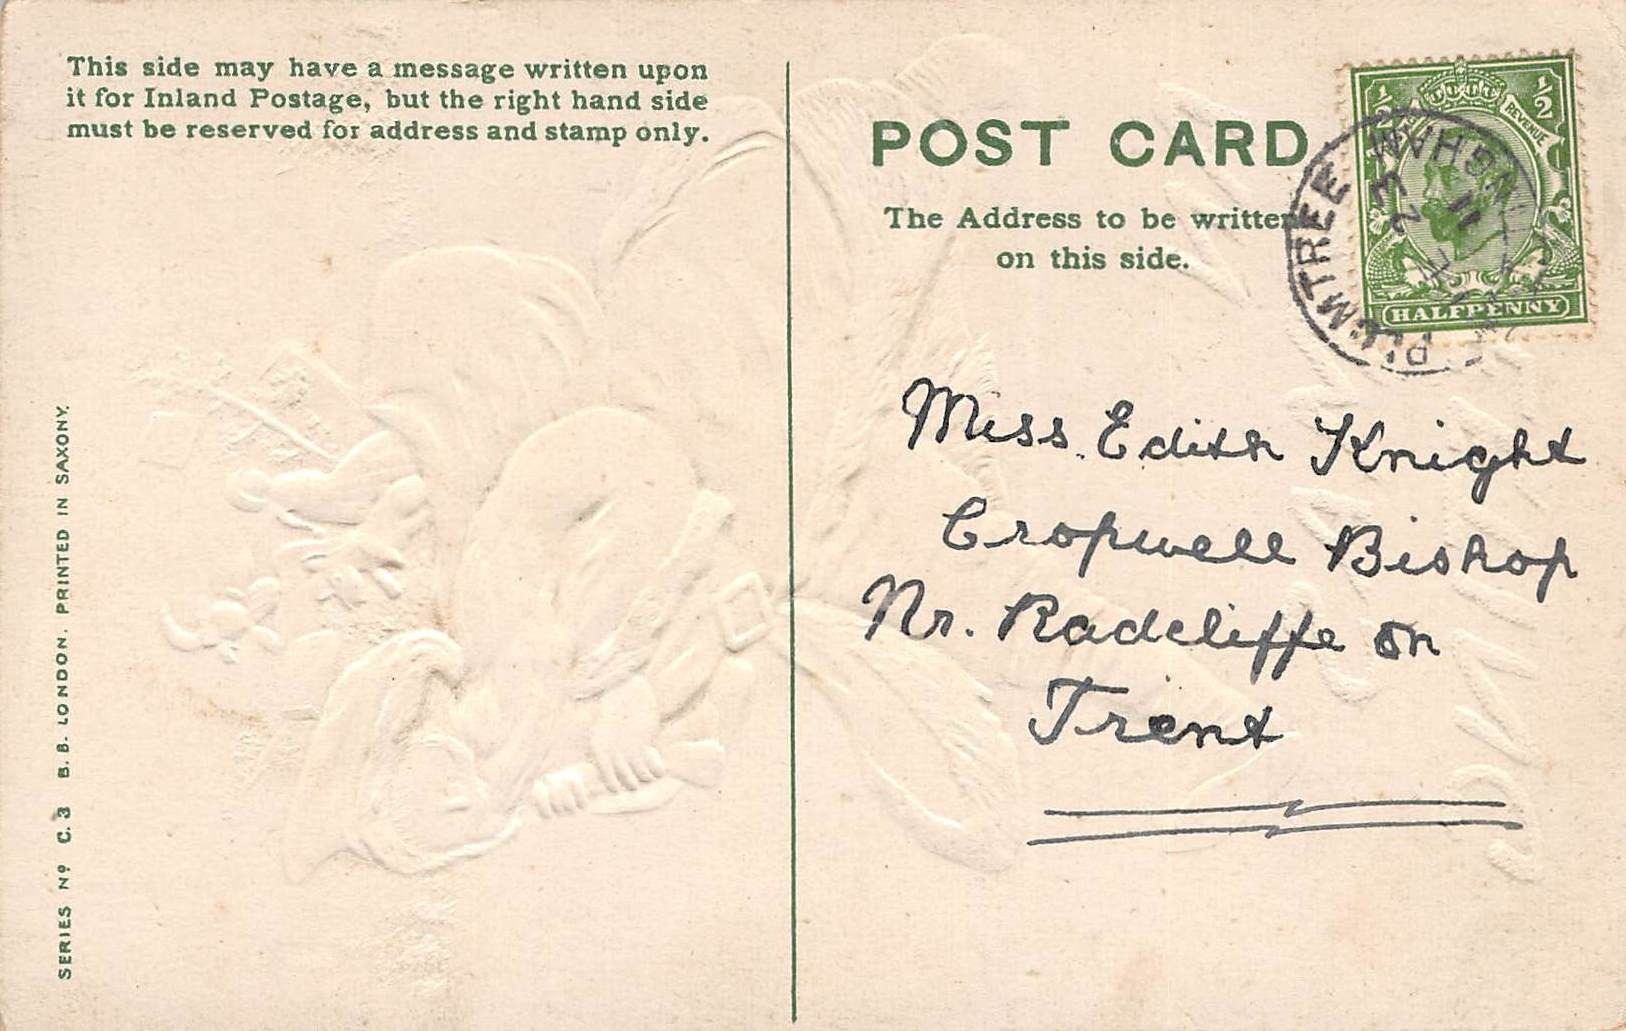 This side may have a message written upon
it for Inland Postage, but the right hand side
must be reserved for address and stamp only.
POST CARD
The Address to be written
on this side.
½ ½
REVENUE
HALFPENNY
PLUMTREE
NGHAM
Miss Edith Knight
Cropwell Bishop
Nr. Radcliffe on
Trent
SERIES Nº C. 3 B. B. LONDON. PRINTED IN SAXONY.